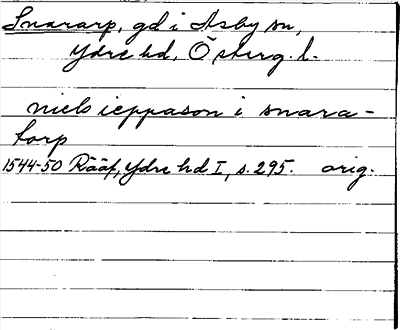 Snararp, gd i Asby sn,
Ydre hd, Österg. l.
niels ieppason i snara-
torp
1544-50 Rääf, Ydre hd I, s. 295. orig.